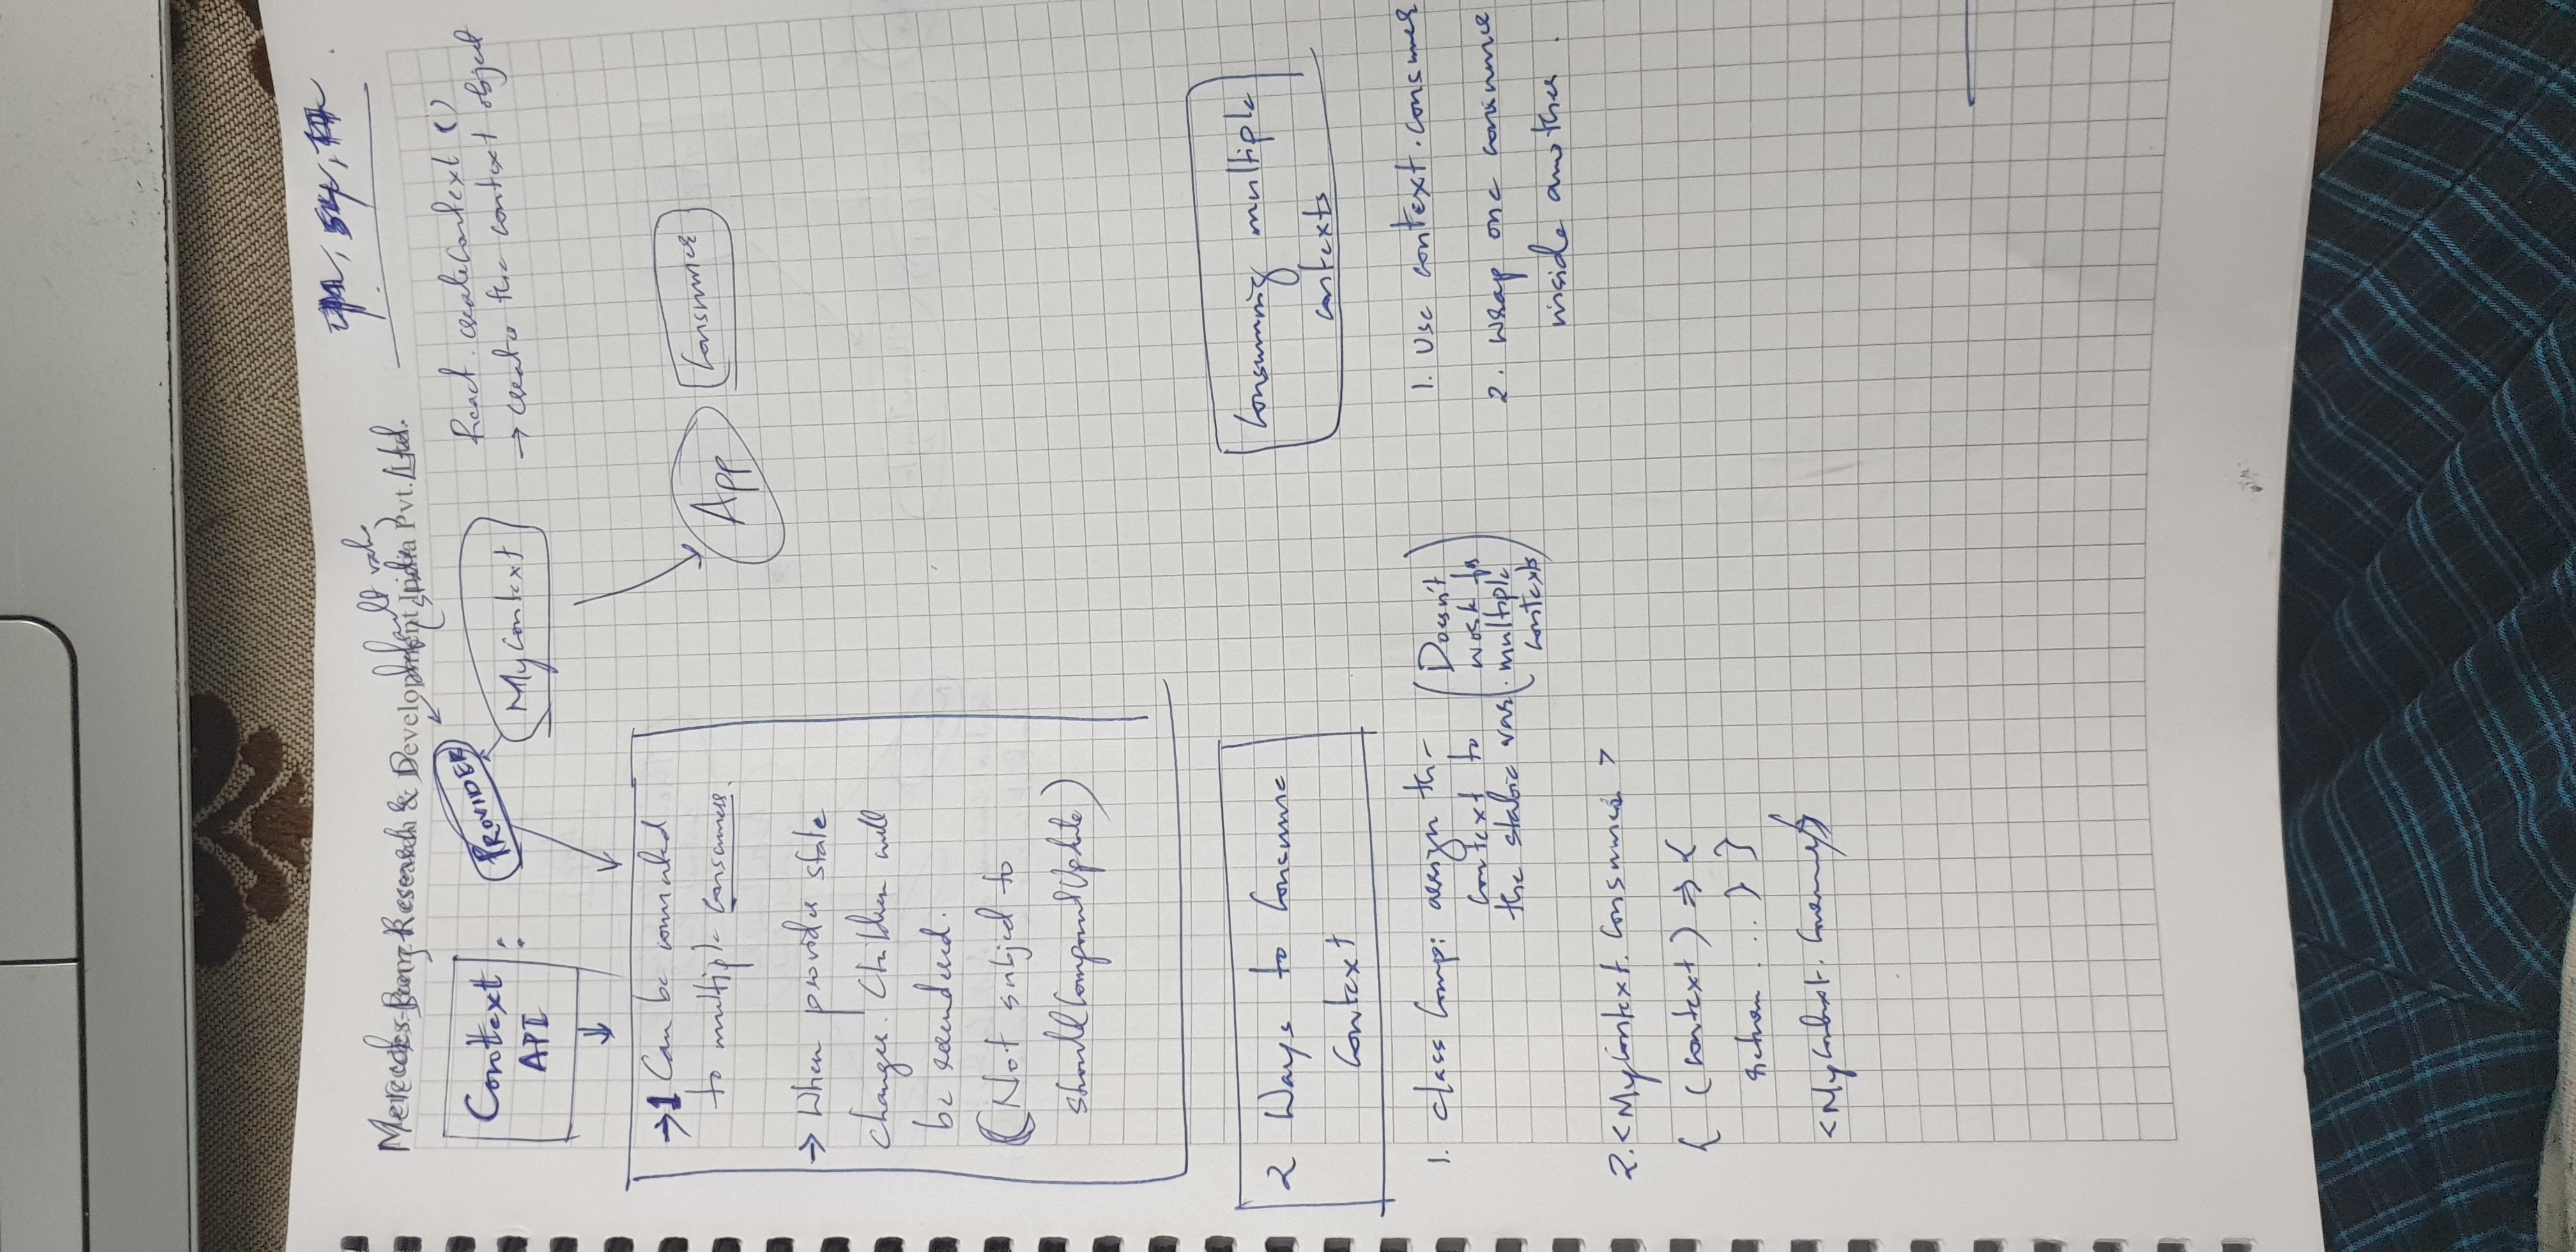 Mercedes-Benz Research & Development India Pvt. Ltd.
default value
(state)
Context
API
:
PROVIDER
MyContext
React.createContext ()
→ create the context object
→ 1 Can be connected
to multiple consumers.
App
Consumer
→ When provider state
changes. Children will
be rerendered.
(Not subject to
shouldComponentUpdate)
2 Ways to Consume
Context
1. class Comp: assign the
context to
the static var.
(Doesn't
work for
multiple
contexts)
2. <MyContext.Consumer>
{ (context) => {
return ... } }
<MyContext.Consumer/>
Consuming multiple
contexts
1. Use context.consumer
2. Wrap one consumer
inside another.